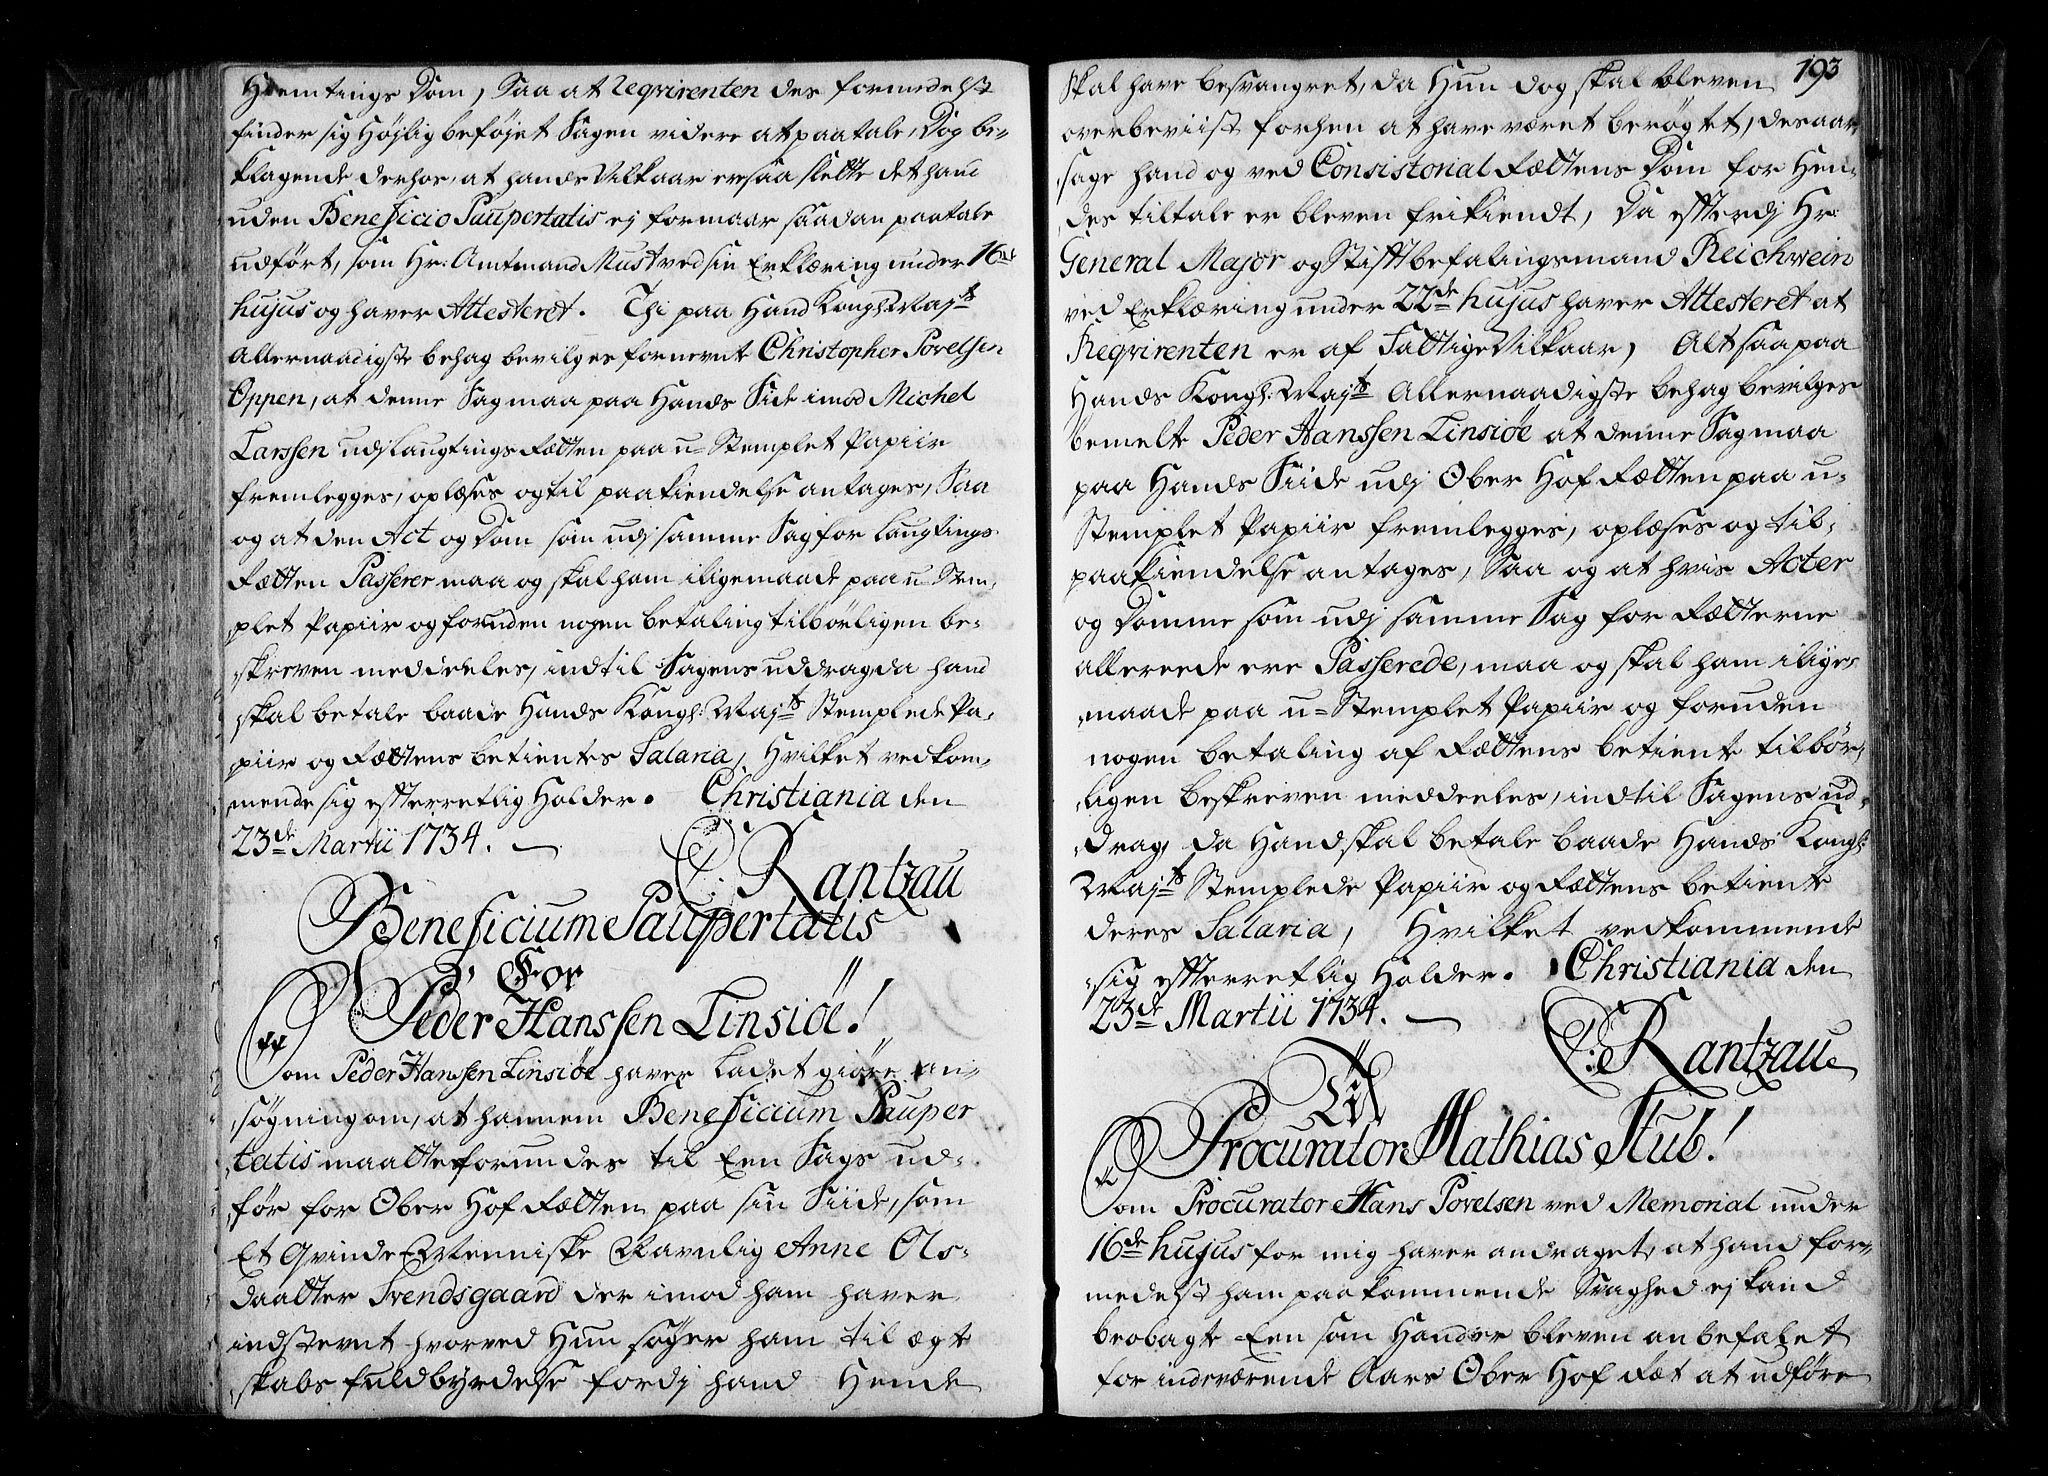 Hiemtings Dom, Saa at Reqvirenten des formedelst
finder sig Højlig beføjet Sagen videre at paatale, Dog be-
klagende derhos, at hands Vilkaar ere saa slette det hand
uden Beneficio Paupertatis ej formaar saadan paatale
udført, som Hr: Amtmand Must ved sin Erklæring under 16de
hujus og haver Attesteret. Thi paa Hans Kongl: Majts
Allernaadigste behag bevilges fornevnte Christopher Povelsen
Oppen, at denne Sag maa paa Hands Side imod Michel
Larssen udj Laugtings Rætten paa u-Stemplet Papiir
fremlegges, oplæses og til paakiendelse antages, Saa
og at den Act og Dom som udj samme Sag for Laugtings
Rætten Passerer maa og skal ham iligemaade paa u-Stem-
plet Papiir og foruden nogen betaling tilbørligen be-
skreven meddeeles, indtil Sagens uddrag, da hand
skal betale baade Hands Kongl: Majts Stemplede Pa-
piir og Rættens betientes Salaria, Hvilket vedkom-
mende sig efterretlig Holder. Christiania den
23de Martii 1734.
C: Rantzau
Beneficium Paupertatis
For
Peder Hanssen Linsiøe!
Som Peder Hanssen Linsiøe haver ladet giøre an-
søgning om, at hannem Beneficium Pauper
tatis maatte forundes til Een Sags ud-
før for Ober Hof Rætten paa sin Siide, som
Et Qvinde Menniske Navnlig Anne Ols-
daatter Svendsgaard der imod ham haver
indstevnt hvorved Hun søger ham til ægte
skabs fuldbyrdelse fordj hand Hende
193
skal have besvangret, da Hun dog skal bleven
overbeviist forhen at have været berøgtet, des aar-
sage hand og ved Consistorial Rættens Dom for Hen-
des tiltale er bleven frikiendt, Da efterdj Hr:
General Major og Stiftbefalingsmand Reichwein
ved Erklæring under 22de hujus haver Attesteret at
Reqvirenten er af Fattige Vilkaar, Alt saa paa
Hands Kongl: Majts Allernaadigste behag bevilges
bemelte Peder Hanssen Linsiøe at denne Sag maa
paa Hands Siide udj Ober Hof Rætten paa u-
Stemplet Papiir fremlegges, oplæses og til
paakiendelse antages, Saa og at hvis Acter
og Domme som udj samme Sag for Rætterne
allereede ere Passerede, maa og skal ham ilige-
maade paa u-Stemplet Papiir og foruden
nogen betaling af Rættens betiente tilbør-
ligen beskreven meddeeles, indtil Sagens ud-
drag, da Hand skal betale baade Hands Kongl:
Majts Stemplede Papiir og Rættens betiente
deres Salaria, Hvilket vedkommende
sig efterretlig Holder. Christiania den
23de Martii 1734.
C: Rantzau
Til
Procurator Mathias Stub!
Som Procurator Hans Povelsen ved Memorial under
16de hujus for mig haver andraget, at hand for-
medelst ham paakommende Svaghed ej kand
beobagte Een som Hand er bleven anbefalet
for indeværende Aars Ober Hof Ræt at udføre